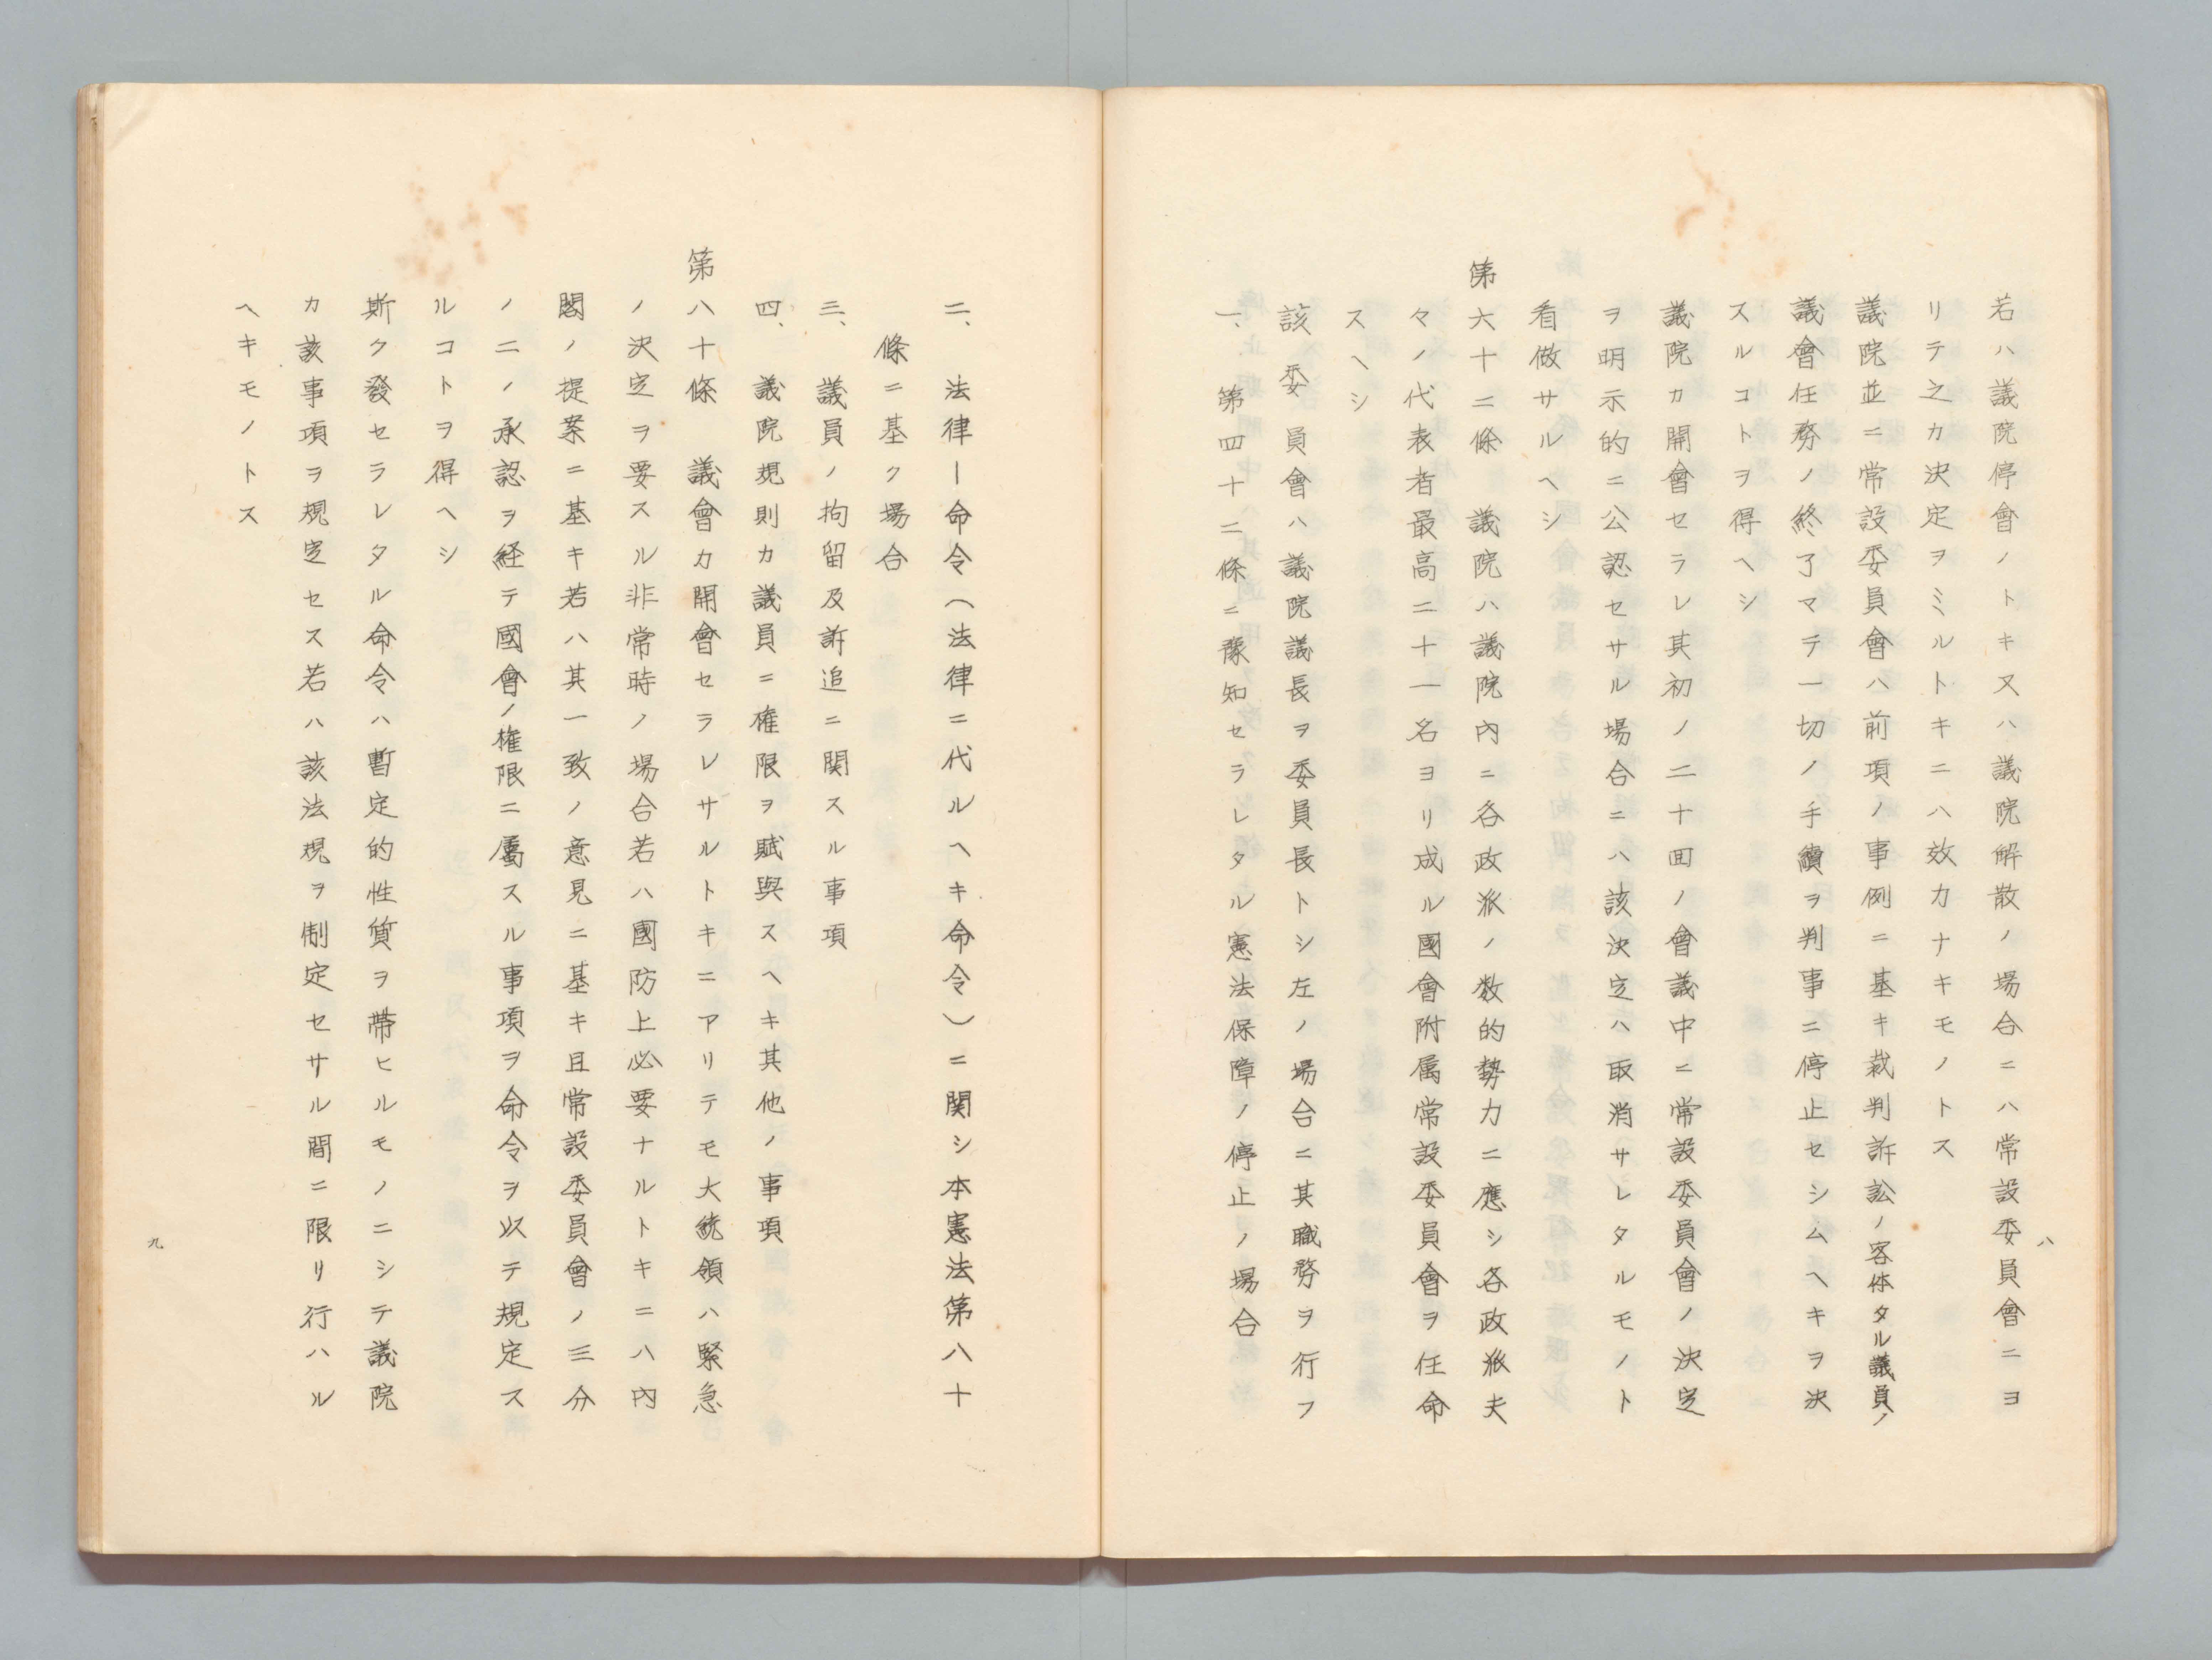 八
若ハ議院停會ノトキ又ハ議院解散ノ場合ニハ常設委員會ニヨ
リテ之カ決定ヲミルトキニハ效カナキモノトス
議院並ニ常設委員會ハ前項ノ事例ニ基キ裁判訴訟ノ客体タル議員ノ
議會任務ノ終了マテ一切ノ手續ヲ判事ニ停止セシムヘキヲ決
スルコトヲ得ヘシ
議院カ開會セラレ其初ノ二十回ノ會議中ニ常設委員會ノ決定
ヲ明示的ニ公認セサル場合ニハ該決定ハ取消サレタルモノト
看做サルヘシ
第六十二條　議院ハ議院內ニ各政派ノ数的勢力ニ應シ各政派夫
々ノ代表者最高二十一名ヨリ成ル國會附属常設委員會ヲ任命
スヘシ
該委員會ハ議院議長ヲ委員長トシ左ノ場合ニ其職務ヲ行フ
一、第四十二條ニ豫知セラレタル憲法保障ノ停止ノ場合
二、法律ー命令（法律ニ代ルヘキ命令）ニ関シ本憲法第八十
條ニ基ク場合
三、議員ノ拘留及訴追ニ関スル事項
四、議院規則カ議員ニ権限ヲ賦與スヘキ其他ノ事項
第八十條　議會カ開會セラレサルトキニアリテモ大統領ハ緊急
ノ決定ヲ要スル非常時ノ場合若ハ國防上必要ナルトキニハ內
閣ノ提案ニ基キ若ハ其一致ノ意見ニ基キ且常設委員會ノ三分
ノ二ノ承認ヲ経テ國會ノ権限ニ屬スル事項ヲ命令ヲ以テ規定ス
ルコトヲ得ヘシ
斯ク發セラレタル命令ハ暫定的性質ヲ帶ヒルモノニシテ議院
カ該事項ヲ規定セス若ハ該法規ヲ制定セサル間ニ限リ行ハル
ヘキモノトス
九